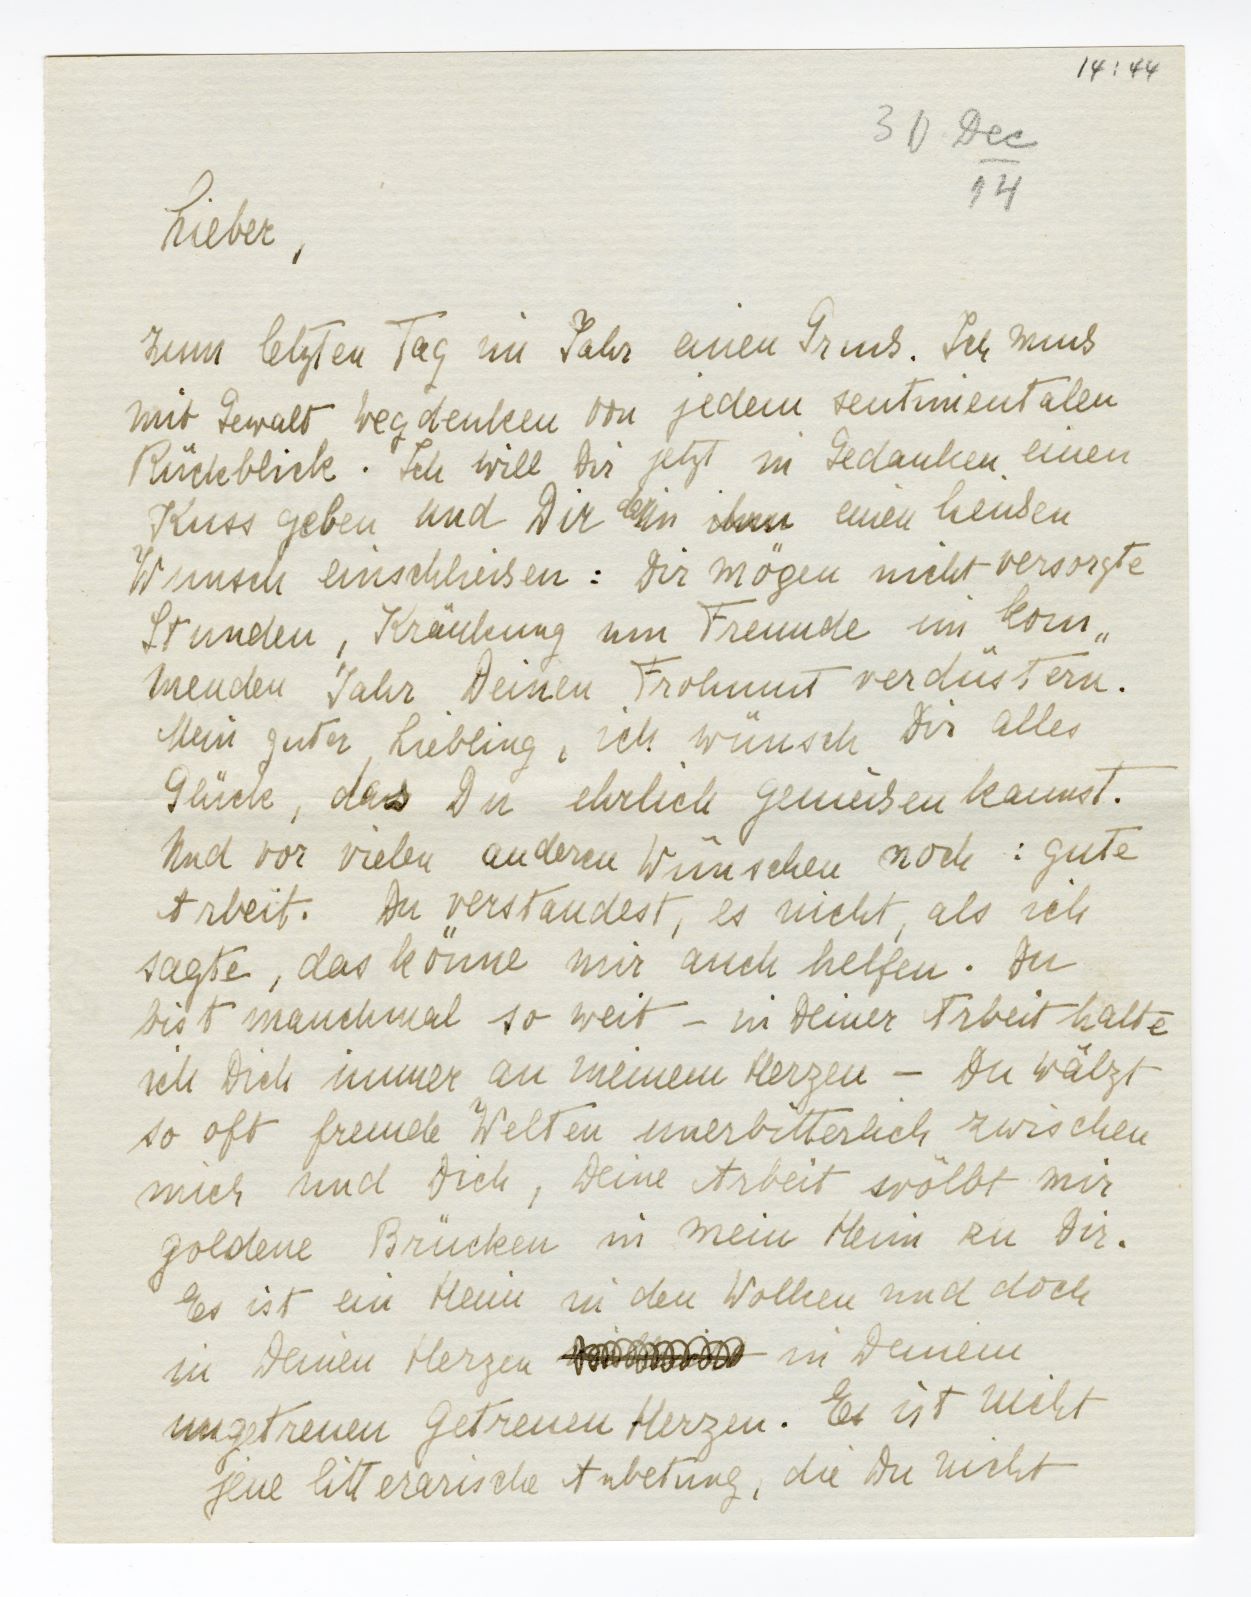 14:44
30 Dec
14
Lieber,
zum letzten Tag im Jahr einen Gruß. Ich muß
mit Gewalt wegdenken von jedem sentimentalen
Rückblick. Ich will Dir jetzt in Gedanken einen
Kuss geben und Dir einen heißen
Wunsch einschließen: Dir mögen nicht versorgte
Stunden, Kränkung um Freunde im kom„
menden Jahr Deinen Frohmut verdüstern.
Mein guter Liebling, ich wünsch Dir alles
Glück, das Du ehrlich genießen kannst.
Und vor vielen anderen Wünschen noch: gute
Arbeit. Du verstandest, es nicht, als ich
sagte, das könne mir auch helfen. Du
bist manchmal so weit – in Deiner Arbeit halte
ich Dich immer an meinem Herzen – Du wälzt
so oft fremde Welten unerbitterlich zwischen
mich und Dich, Deine Arbeit wölbt mir
goldene Brücken in mein Heim zu Dir.
Es ist ein Heim in den Wolken und doch
in Deinen Herzen in Deinem
ungetreuen getreuen Herzen. Es ist nicht
jene litterarische Anbetung, die Du nicht